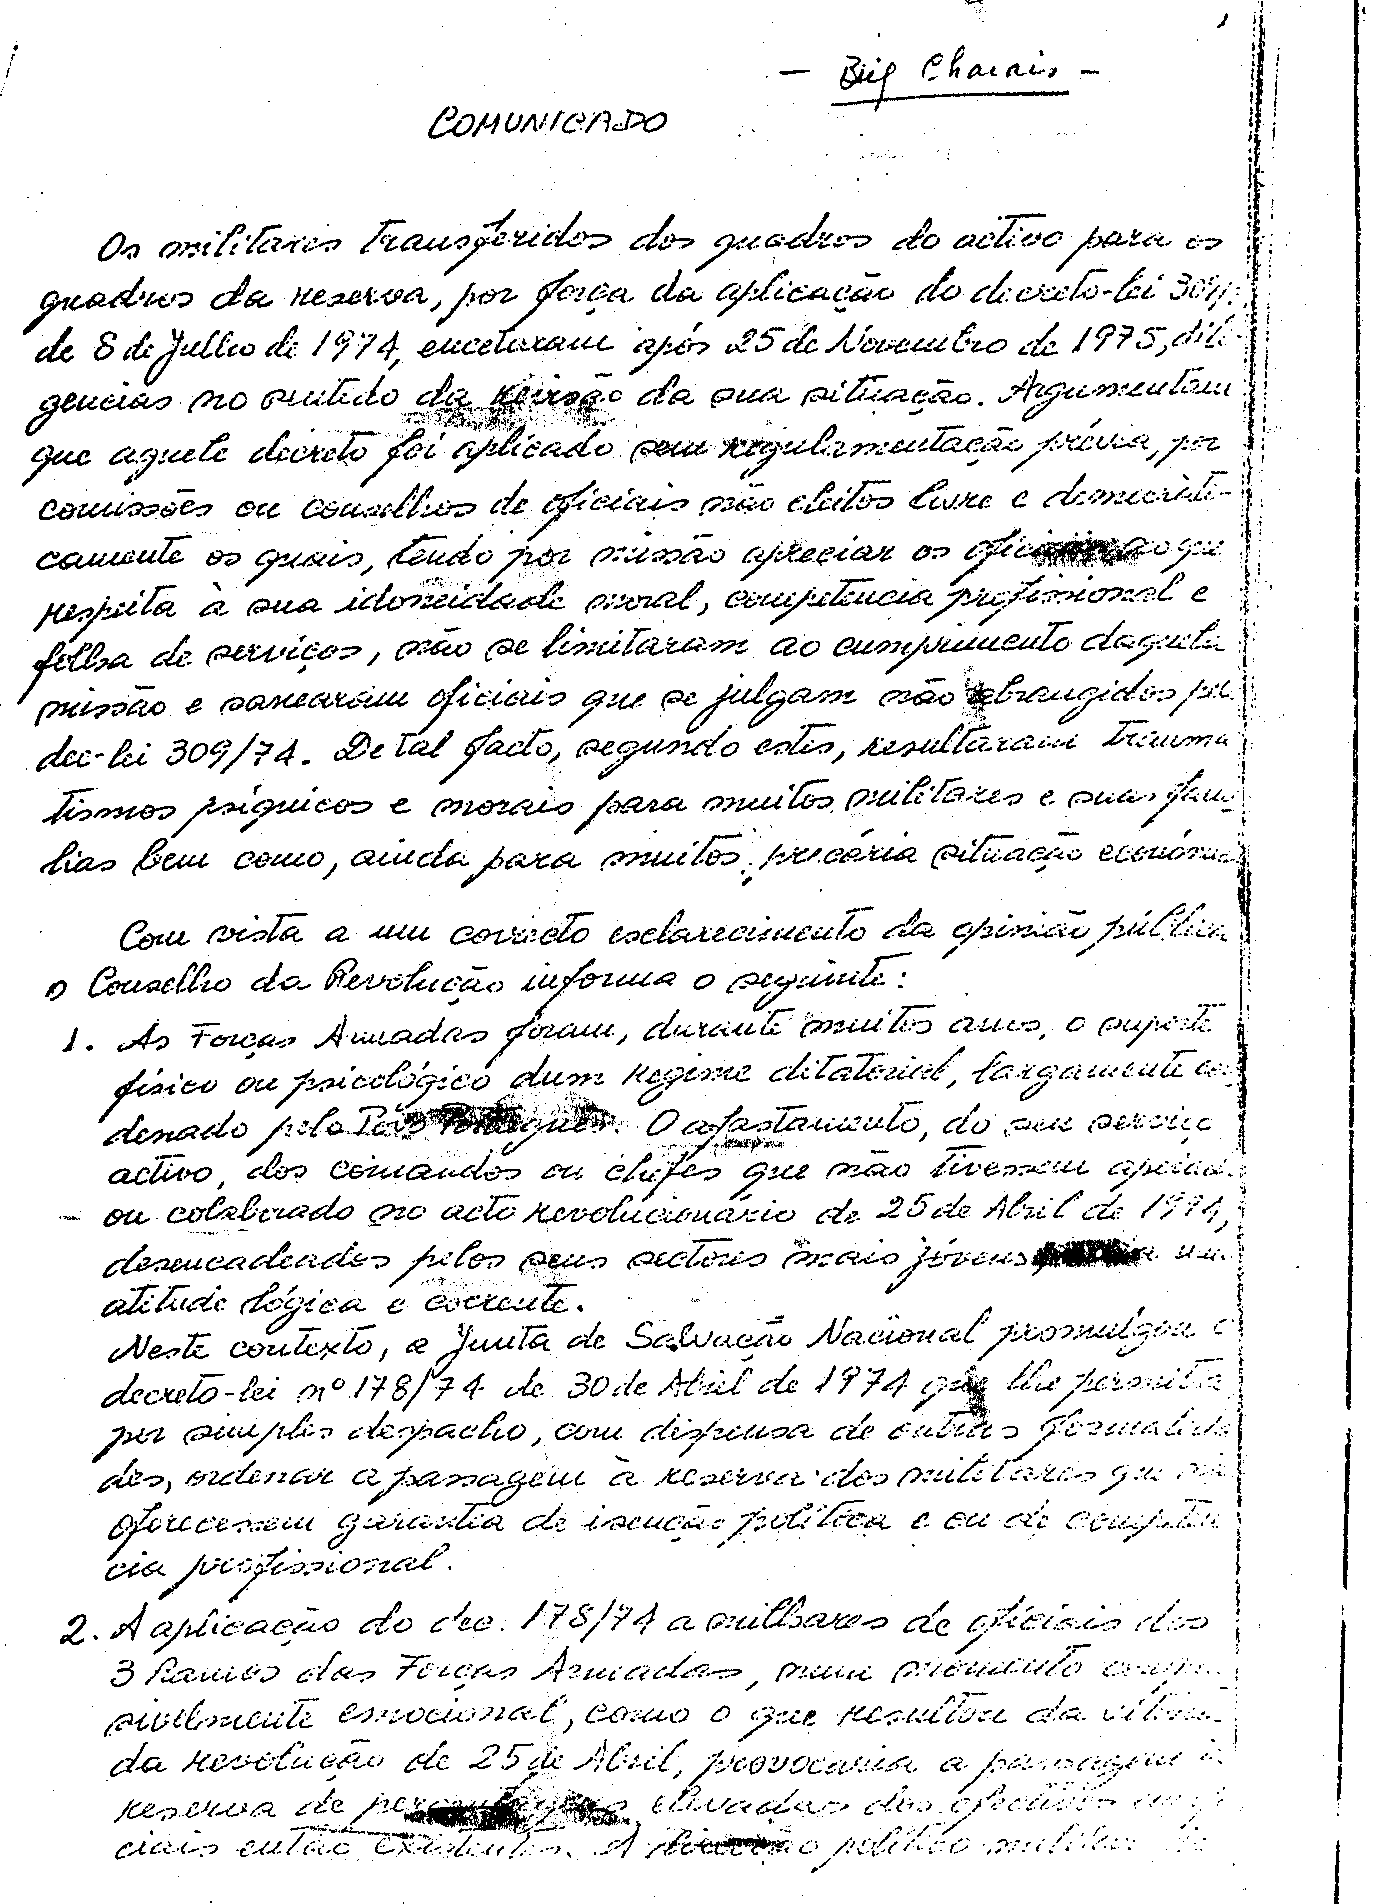 - Brig Charais -
COMUNICADO
Os militares transferidos dos quadros do activo para os
quadros da reserva, por força da aplicação do decreto-lei 309/
de 8 de Julho de 1974, encetaram após 25 de Novembro de 1975, dili-
gencias no sentido da revisão da sua situação. Argumentam
que aquele decreto foi aplicado sem regulamentação prévia, por
comissões ou conselhos de oficiais não eleitos livre e democrati-
camente os quais, tendo por missão apreciar os oficiais no que
respeita à sua idoneidade moral, competência profissional e
folha de serviços, não se limitaram ao cumprimento daquela
missão e sanearam oficiais que se julgam não abrangidos pel
dec-lei 309/74. De tal facto, segundo estes, resultaram trauma
tismos psíquicos e morais para muitos militares e suas famí
lias bem como, ainda para muitos, precária situação económica
Com vista a um correcto esclarecimento da opinião pública
o Conselho da Revolução informa o seguinte:
1. As Forças Armadas foram, durante muitos anos, o suporte
físico ou psicológico dum regime ditatorial, largamente con
denado pelo Povo Português. O afastamento, do seu serviço
activo, dos comandos ou chefes que não tivessem apoiado
ou colaborado no acto revolucionário de 25 de Abril de 1974,
desencadeados pelos seus sectores mais jóvens, uma
atitude lógica e coerente.
Neste contexto, a Junta de Salvação Nacional promulgou o
decreto-lei nº 178/74 de 30 de Abril de 1974 que lhe permitia
por simples despacho, com dispensa de outras formalida
des, ordenar a passagem à reserva dos militares que não
oferecessem garantia de isenção política e ou de competên
cia profissional.
2. A aplicação do dec. 178/74 a milhares de oficiais dos
3 Ramos das Forças Armadas, num momento compreen
sivelmente emocional, como o que resultou da vitória
da revolução de 25 de Abril, provocaria a passagem à
reserva de percentagens elevadas dos efectivos em ofi
ciais então existentes. A direcção político-militar